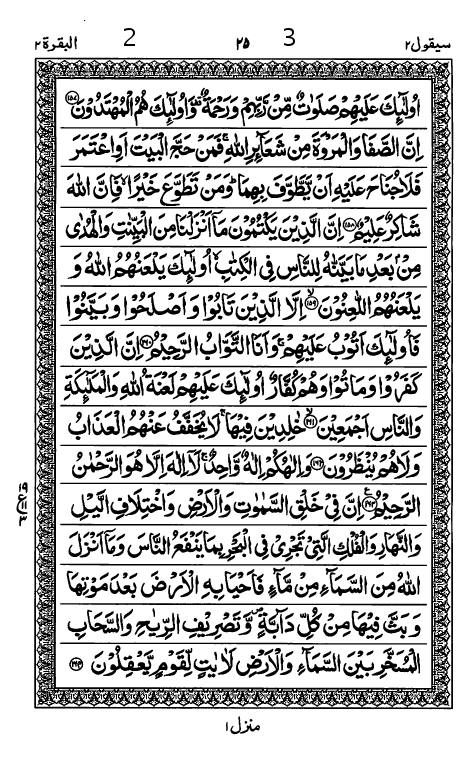 سيقول٢ 3 ٢٥ 2 البقرة٢
اُولٰٓئِكَ عَلَيْهِمْ صَلَوٰتٌ مِّنْ رَّبِّهِمْ وَرَحْمَةٌ ۟ وَاُولٰٓئِكَ هُمُ الْمُهْتَدُوْنَ ﴿۱۵۷﴾
اِنَّ الصَّفَا وَالْمَرْوَةَ مِنْ شَعَآئِرِ اللّٰهِ ۚ فَمَنْ حَجَّ الْبَيْتَ اَوِ اعْتَمَرَ
فَلَا جُنَاحَ عَلَيْهِ اَنْ يَّطَّوَّفَ بِهِمَا ؕ وَمَنْ تَطَوَّعَ خَيْرًا ۙ فَاِنَّ اللّٰهَ
شَاكِرٌ عَلِيْمٌ ﴿۱۵۸﴾ اِنَّ الَّذِيْنَ يَكْتُمُوْنَ مَآ اَنْزَلْنَا مِنَ الْبَيِّنٰتِ وَالْهُدٰى
مِنْۢ بَعْدِ مَا بَيَّنّٰهُ لِلنَّاسِ فِى الْكِتٰبِ ۙ اُولٰٓئِكَ يَلْعَنُهُمُ اللّٰهُ وَ
يَلْعَنُهُمُ اللّٰعِنُوْنَ ﴿۱۵۹﴾ۙ اِلَّا الَّذِيْنَ تَابُوْا وَاَصْلَحُوْا وَبَيَّنُوْا
فَاُولٰٓئِكَ اَتُوْبُ عَلَيْهِمْ ۚ وَاَنَا التَّوَّابُ الرَّحِيْمُ ﴿۱۶۰﴾ اِنَّ الَّذِيْنَ
كَفَرُوْا وَمَاتُوْا وَهُمْ كُفَّارٌ اُولٰٓئِكَ عَلَيْهِمْ لَعْنَةُ اللّٰهِ وَالْمَلٰٓئِكَةِ
وَالنَّاسِ اَجْمَعِيْنَ ﴿۱۶۱﴾ۙ خٰلِدِيْنَ فِيْهَا ۚ لَا يُخَفَّفُ عَنْهُمُ الْعَذَابُ
وَلَا هُمْ يُنْظَرُوْنَ ﴿۱۶۲﴾ وَاِلٰهُكُمْ اِلٰهٌ وَّاحِدٌ ۚ لَآ اِلٰهَ اِلَّا هُوَ الرَّحْمٰنُ
الرَّحِيْمُ ﴿۱۶۳﴾ اِنَّ فِىْ خَلْقِ السَّمٰوٰتِ وَالْاَرْضِ وَاخْتِلَافِ الَّيْلِ
وَالنَّهَارِ وَالْفُلْكِ الَّتِىْ تَجْرِىْ فِى الْبَحْرِ بِمَا يَنْفَعُ النَّاسَ وَمَآ اَنْزَلَ
اللّٰهُ مِنَ السَّمَآءِ مِنْ مَّآءٍ فَاَحْيَا بِهِ الْاَرْضَ بَعْدَ مَوْتِهَا
وَبَثَّ فِيْهَا مِنْ كُلِّ دَآبَّةٍ ۪ وَّتَصْرِيْفِ الرِّيٰحِ وَالسَّحَابِ
الْمُسَخَّرِ بَيْنَ السَّمَآءِ وَالْاَرْضِ لَاٰيٰتٍ لِّقَوْمٍ يَّعْقِلُوْنَ ﴿۱۶۴﴾
منزل۱